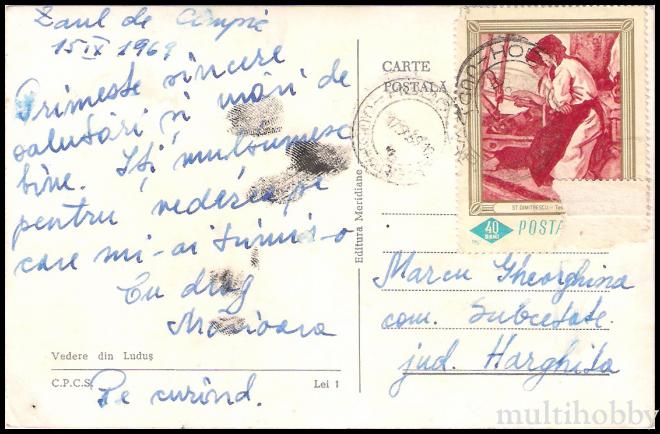 Zaul de Cîmpie
15 IX 1969
Primește sincere
salutări și mări de
bine. Îți mulțumesc
pentru vederea pe
care mi-ai trimis-o
Cu drag
Mărioara
Pe curînd.
Vedere din Luduș
C.P.C.S.
Lei 1
Editura Meridiane
CARTE
POȘTALĂ
ST DIMITRESCU
40
BANI
POSTA
Marcu Gheorghina
com. Subcetate
jud. Harghita
multihobby